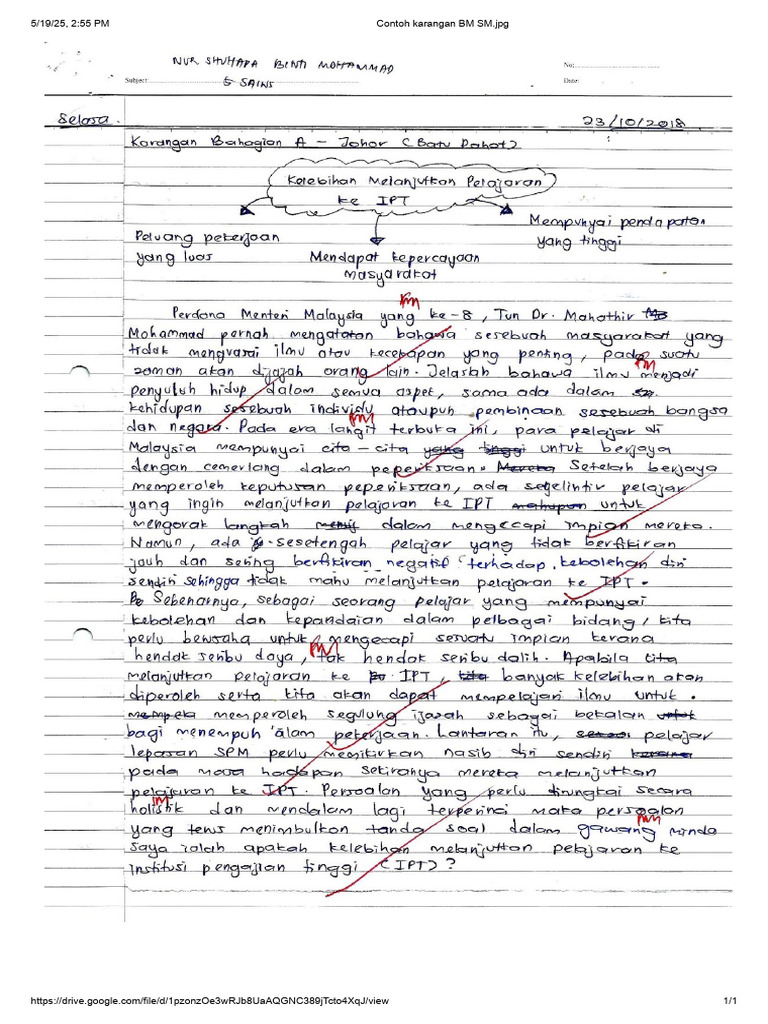 5/19/25, 2:55 PM Contoh karangan BM SM.jpg
NUR SHUHADA BINTI MOHAMMAD No:
Subject: 5 SAINS Date:
Selasa. 23/10/2018
Karangan Bahagian A - Johor (Batu Pahat)
Kelebihan Melanjutkan Pelajaran
ke IPT
Mempunyai pendapatan
Peluang pekerjaan yang tinggi
yang luas Mendapat kepercayaan
masyarakat
Perdana Menteri Malaysia yang ke-8, Tun Dr. Mahathir
Mohammad pernah mengatakan bahawa sesebuah masyarakat yang
tidak menguasai ilmu atau kecekapan yang penting, pada suatu
zaman akan dijajah orang lain. Jelaslah bahawa ilmu menjadi
penyuluh hidup dalam semua aspek, sama ada dalam
kehidupan sesebuah individu ataupun pembinaan sesebuah bangsa
dan negara. Pada era langit terbuka ini, para pelajar di
Malaysia mempunyai cita-cita yang tinggi untuk berjaya
dengan cemerlang dalam peperiksaan. Mereka Setelah berjaya
memperoleh keputusan peperiksaan, ada segelintir pelajar
yang ingin melanjutkan pelajaran ke IPT mahupun untuk
mengorak langkah dalam mengecapi impian mereka.
Namun, ada sesetengah pelajar yang tidak berfikiran
jauh dan sering berfikiran negatif terhadap kebolehan diri
sendiri sehingga tidak mahu melanjutkan pelajaran ke IPT.
Sebenarnya, sebagai seorang pelajar yang mempunyai
kebolehan dan kepandaian dalam pelbagai bidang, kita
perlu berusaha untuk mengecapi sesuatu impian kerana
hendak seribu daya, tak hendak seribu dalih. Apabila kita
melanjutkan pelajaran ke IPT, kita banyak kelebihan akan
diperoleh serta kita akan dapat mempelajari ilmu untuk.
memperoleh segulung ijazah sebagai bekalan untuk
bagi menempuh alam pekerjaan. Lantaran itu, pelajar
lepasan SPM perlu memikirkan nasib diri sendiri kerana
pada masa hadapan sekiranya mereka melanjutkan
pelajaran ke IPT. Persoalan yang perlu dirungkai secara
holistik dan mendalam lagi terperinci maka persoalan
yang terus menimbulkan tanda soal dalam gawang minda
saya ialah apakah kelebihan melanjutkan pelajaran ke
institusi pengajian tinggi (IPT)?
https://drive.google.com/file/d/1pzonzOe3wRJb8UaAQGNC389jTcto4XqJ/view 1/1